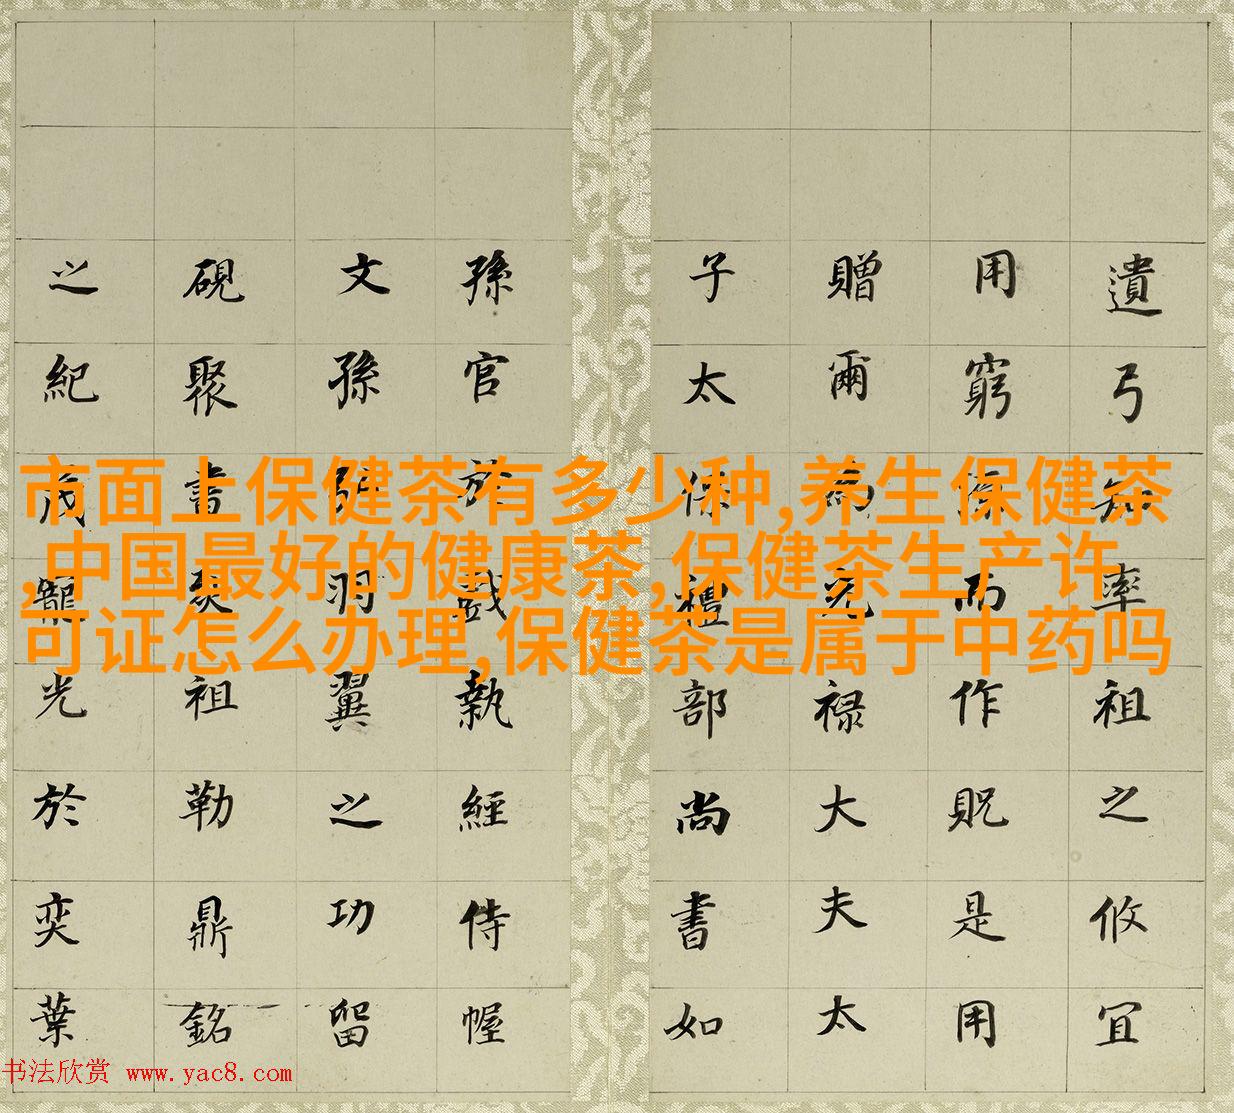 市面上保健茶有多少种,养生保健茶
,中国最好的健康茶,保健茶生产许
可证怎么办理,保健茶是属于中药吗
遺弓率祖之攸宜
用窮而作貺是用
贈爾為光祿大夫太
子太保禮部尚書如
孫官於戲執經侍幄
文孫羽翼之功留
硯聚書爰祖勒鼎銘
之紀茂寵光於奕葉
书法欣赏 www.yac8.com